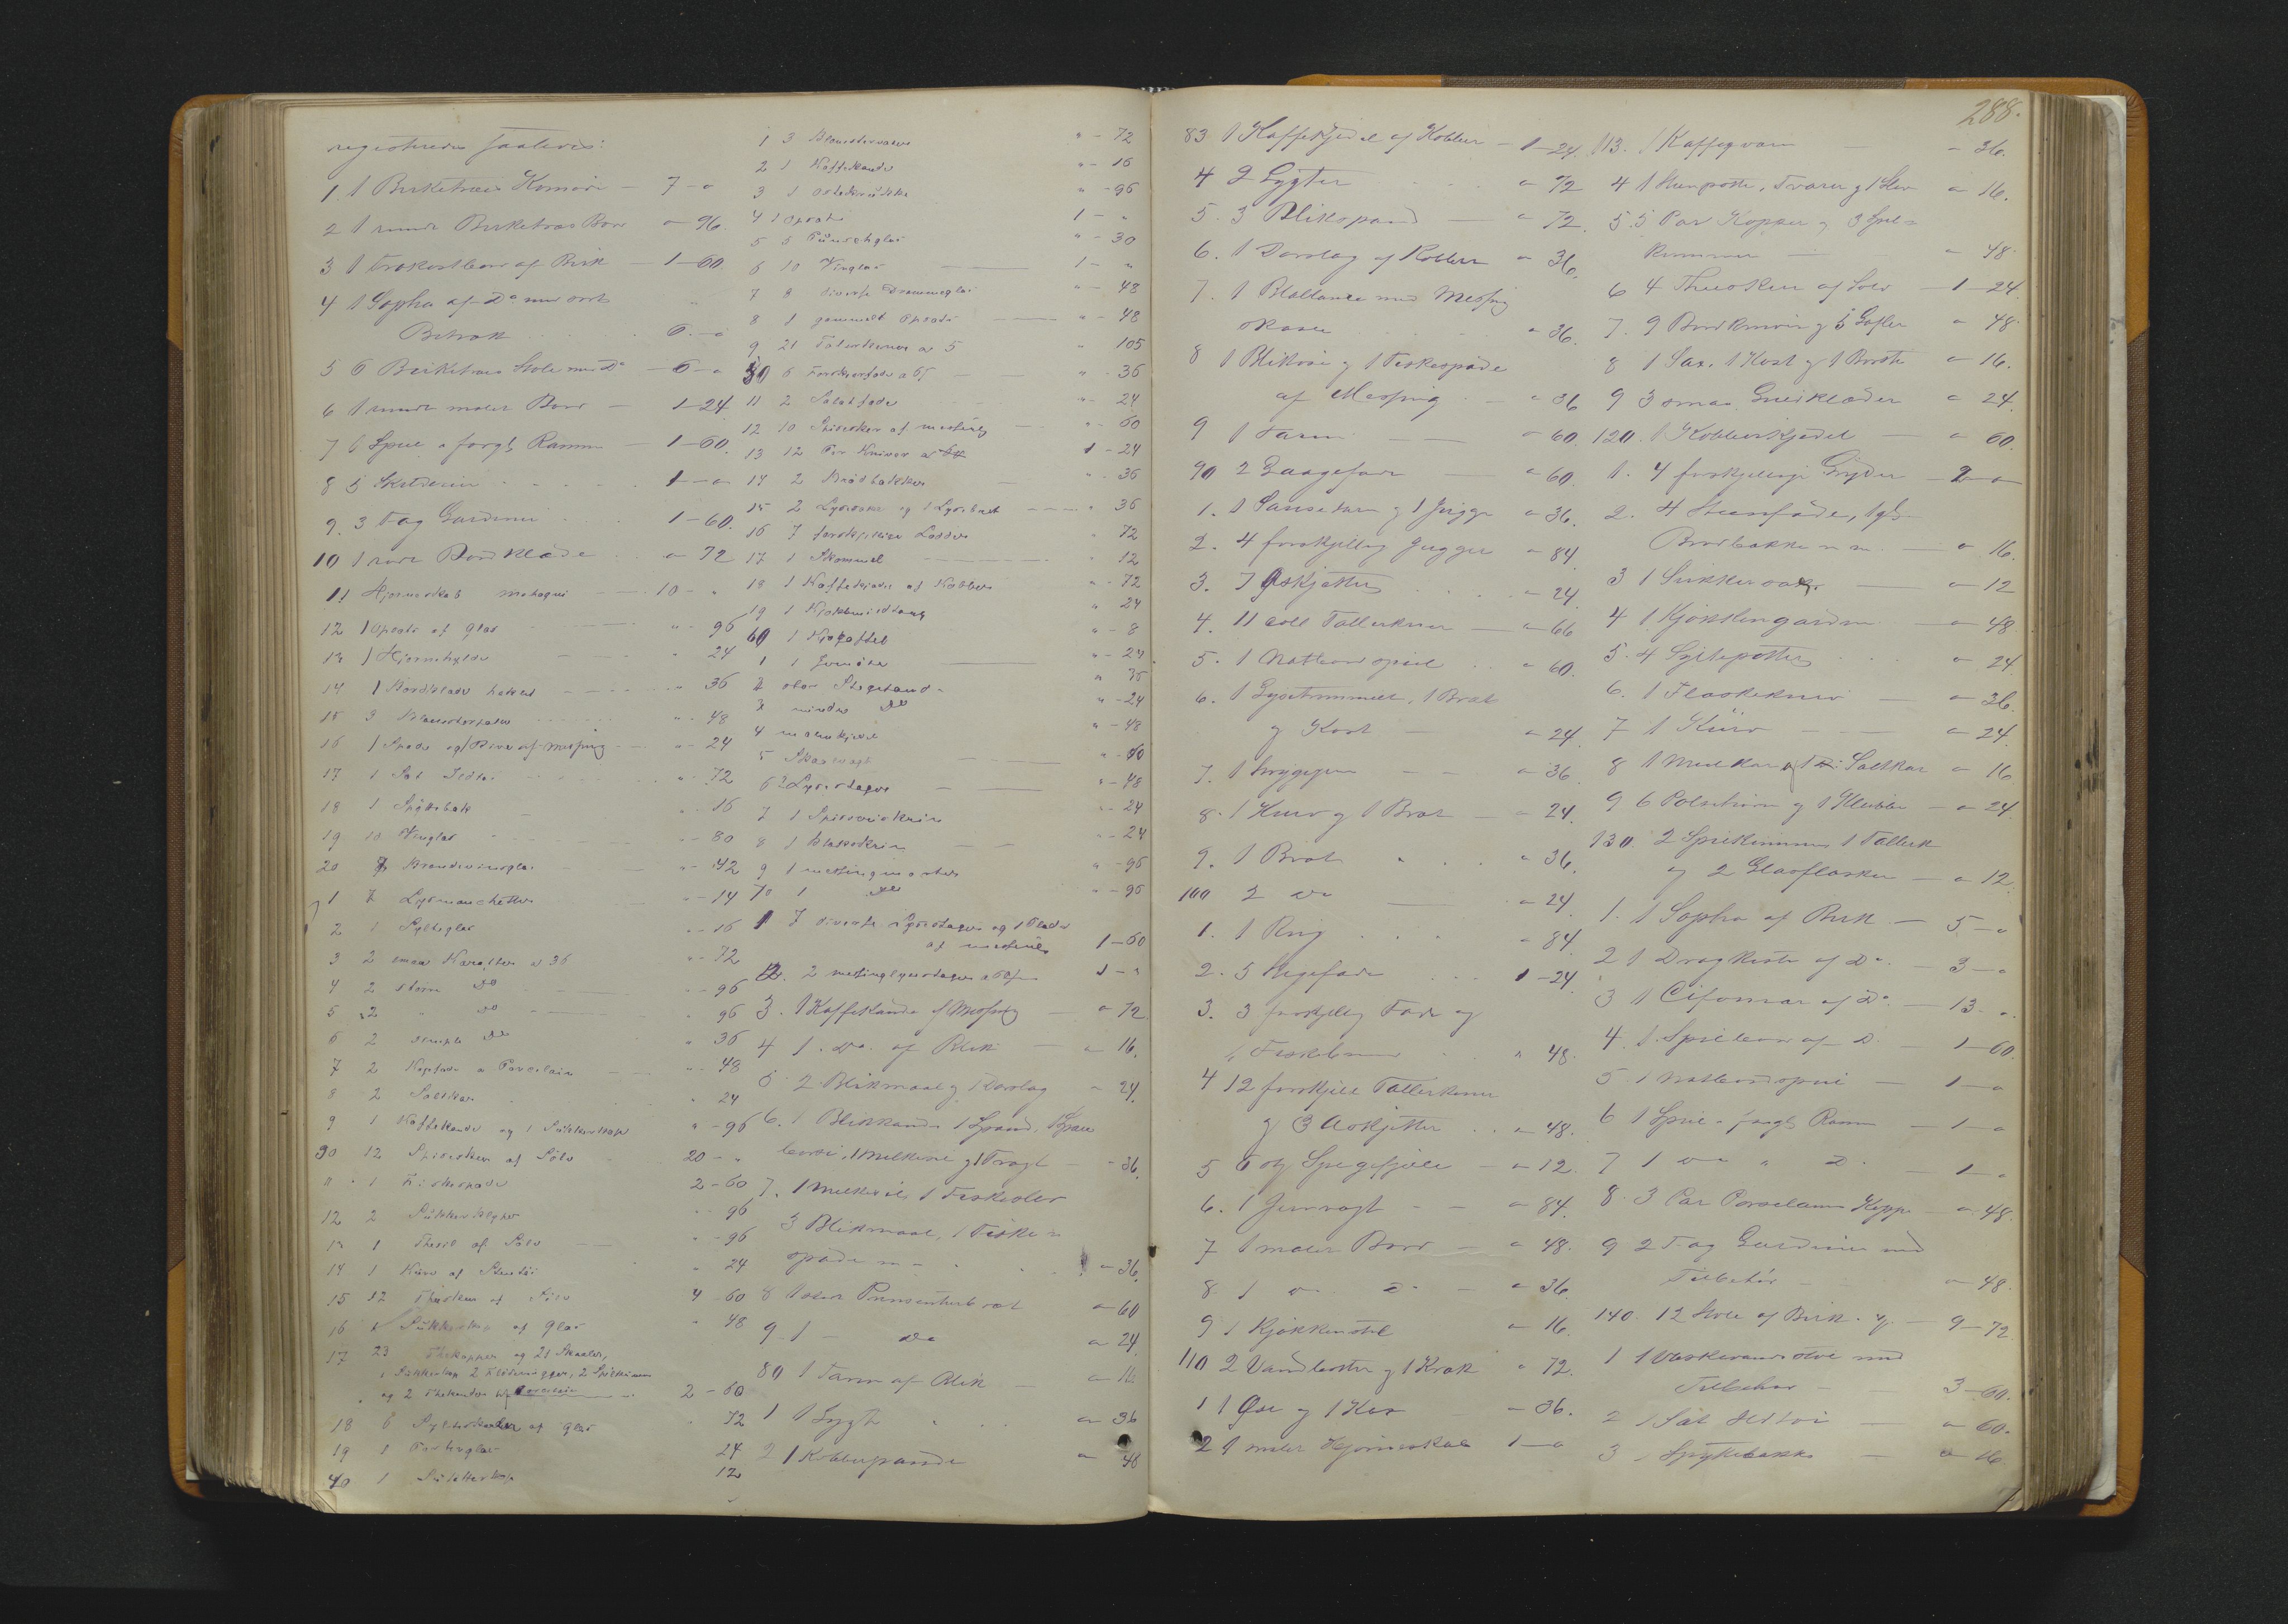 registreredes saaledes:
1. 1 Birketræes Komode - 7 - "
2 1 rundt Birketræs Bord " - 96.
3 1 Frokostbord af Birk - 1 - 60.
4 1 Sopha af Do med sort
Betræk 6. - "
5 6 Birketræes Stole med Do - 6 - "
6 1 rundt malet Bord - 1 - 24
7 1 Speil i forg. Ramme - 1 - 60.
8 5 Skilderier 1 - "
9. 3 Fag Gardiner 1 - 60.
10 1 rødt Bordklæde " 72
11 Hjørneskab mahogni 10 - "
12 1 Opsats af Glas " - 96
13 1 Hjørnehylde " 24
14 1 Bordklæde heklet " 36
15 3 Blomstervaser " - 48
16 1 Spade og 1 River af messing " - 24
17 1 Sæt Ildtøi " - 72
18 1 Spyttebak " - 16
19 10 Vinglas " - 80
20 7 Brændevinsglas " - 42
1 7 Lysmanchetter " - 14
2 1 Sylteglas " - 16
3 2 smaa Karafler a 36 " - 72
4 2 større do " - 96
5 2 " do " 96
6 2 simple do " 36
7 2 Kagefade a Porcelain " - 48
8 2 Saltkar " 24
9 1 Kaffekande og 1 Sukkerskaal " - 96
30 12 Spiseskeer af Sølv 20 - "
11 1 Fiskespade 2 - 60
12 2 Sukkerklyper " 96
13 1 Thesil af Sølv " - 96
14 1 Kurv af Stentøi " 24
15 12 Theskeer af Sølv 4 - 60
16 1 Sukkerkop af Glas " 48
17 23 Thekopper og 21 Skaaler,
1 Sukkerkop 2 Flødemugger, 2 Spølkummer
og 2 Thekander af Porcelain 2 - 60
18 6 Sylteskaaler af Glas " 72
19 1 Portvinglas 24
40 1 Sukkerkop 12
1 3 Blomstervaser " - 72
2 1 Kaffekande " - 16
3 1 Ostekrukke " - 96
4 1 Opsats 1 - "
5 5 Punschglas " - 30
6 10 Vinglas 1 - "
7 8 diverse Drammeglas " - 48
8 1 gammelt Opsats " - 48
9 21 Talerkener a 5 " 105
50 6 Forskjerfade a 6 " - 36
11 2 Salatfade " - 24
12 10 Spiseskeer af messing " - 60
13 12 Par Kniver a 1 - 24
14 2 Brødbakker " - 36
15 2 Lysesaxe og 1 Lysebret " 36
16 7 forskjellige Lodder " 72
17 1 Skammel 12
18 1 Kaffekjedel af Kobber " - 72
19 1 Kjøkkenildtang " 24
60 1 Kjødgaffel " - 8
1 1 " - 24
2 stor Stegepande " 36
3 mindre do " - 24
4 malmkjedel " - 48
5 Skaalvægt " - 60
6 2 Lysestager " - 48
7 1 Spisseskrin " - 24
8 1 Flaskeskrin " - 24
9 1 messingmorter " - 96
70 1 do " - 96
1 7 diverse Lysestager og 1 Plade
af messing 1 - 60
2. 2 messinglysestager a 60 1 - "
3. 1 Kaffekande af Messing " 72
4 1. do. af Blik " 16.
5 2 Blikmaal og 1 Dørslag " 24.
6. 1 Blikkande 1 Spand, 1 Spare
bøsse, 1 Melkesil og 1 Tragt - 36.
7. 1 Melkesil, 1 Fiskeslev
3 Blikmaal, 1 Fiske =
spade m - " - 36.
8 1 stor Presenterbret " - 60
9 1 - do " 24.
80 1 Tarin af Blik - " 16
1 1 Lygte " 36
2 1 Kobberpande " 48
288.
83 1 Kaffekjedel af Kobber - 1 - 24.
4 2 Lygter " 72
5. 3 Blikspand - " 72.
6. 1 Dørslag af Kobber " 36.
7. 1 Ballance med Messing
skaaler " 36.
8 1 Blikøse og 1 Fiskespade
af Messing - " 36
9 1 Tarin " 60.
90 2 Laagefade " 60.
1. 1 Sauseskaal og 1 Jugge " 36.
2. 4 forskjellig Jugger " 84.
3. 7 Askjetter " 24.
4. 11 Tallerkner " 66
5. 1 Natbordspeil " 60.
6. 1 Lysetromme, 1 Bræt
og Kost " 24.
7. 1 Strygejern " 36.
8. 1 Kurv og 1 Bræt " 24.
9. 1 Bræt " 36.
100 2 do " 24.
1. 1 Ring " 84.
2. 5 Stegefade 1 - 24.
3. 3 forskjellig Fade og
1 " 48.
4 12 forskjell Tallerkener
og 3 Askjetter " 48.
5 6 Spegefjæle " 12.
6. 1 Jernvægt " 84.
7 1 malet Bord " 48.
8 1 do D. " 36.
9 1 Kjøkkenstol " 16.
110 2 Vandbøtter og 1 Krak " 72.
1 1 Øse og 1 Kar " 36.
2 1 malet Hjørneskab 1 - "
113. 1 Kaffeqværn - " 36.
4 1 Steenpotte, Tvarer og 1 Slev " 16.
5. 5 Par Kopper og 3 Spøl =
kummer " 48.
6 4 Theeskeer af Sølv - 1 - 24.
7. 9 Bordknive og 5 Gafler " 48.
8 1 Sax. 1 Kost og 1 Børste " 16.
9 3 smaa Gulvklæder " 24.
120. 1 Kobberkjedel - " 60.
1. 4 forskjellige Gryder - 2 - "
2. 4 Steenfade, 1 gl.
Brødbakke m m. " 16.
3 1 Sukkersax - " 12
4 1 Kjøkkengardin " 48.
5. 4 Syltepotter " 24.
6. 1 Flaskekurv - " 36.
7 1 Kurv " 24.
8 1 Meelkar og 1 Saltkar " 16
9 6 og 1 Klubbe " 24.
130. 2 Spølekummer 1 Tallerk
og 2 Glasflasker - " 12.
1. 1 Sopha af Birk - 5 - "
2 1 Dragkiste af Do. - 3 - "
3 1 Cifonnier af Do. - 13 - "
4. 1 Spillebord af D. - 1 - 60.
5. 1 Natbordspeil - 1 - "
6 1 Speil i forg. Ramme - 1 - "
7 1 do " D. 1 - "
8. 3 Par Porcelains Kopper " 48.
9 2 Fag Gardiner med
Tilbehør " 48.
140. 12 Stole af Birk. - 9 - 72.
1 1 Vaskevandstol med
Tilbehør - 3 - 60.
2 1 Sæt Ildtøi - " 60.
3 1 Spyttebakke - " 16.